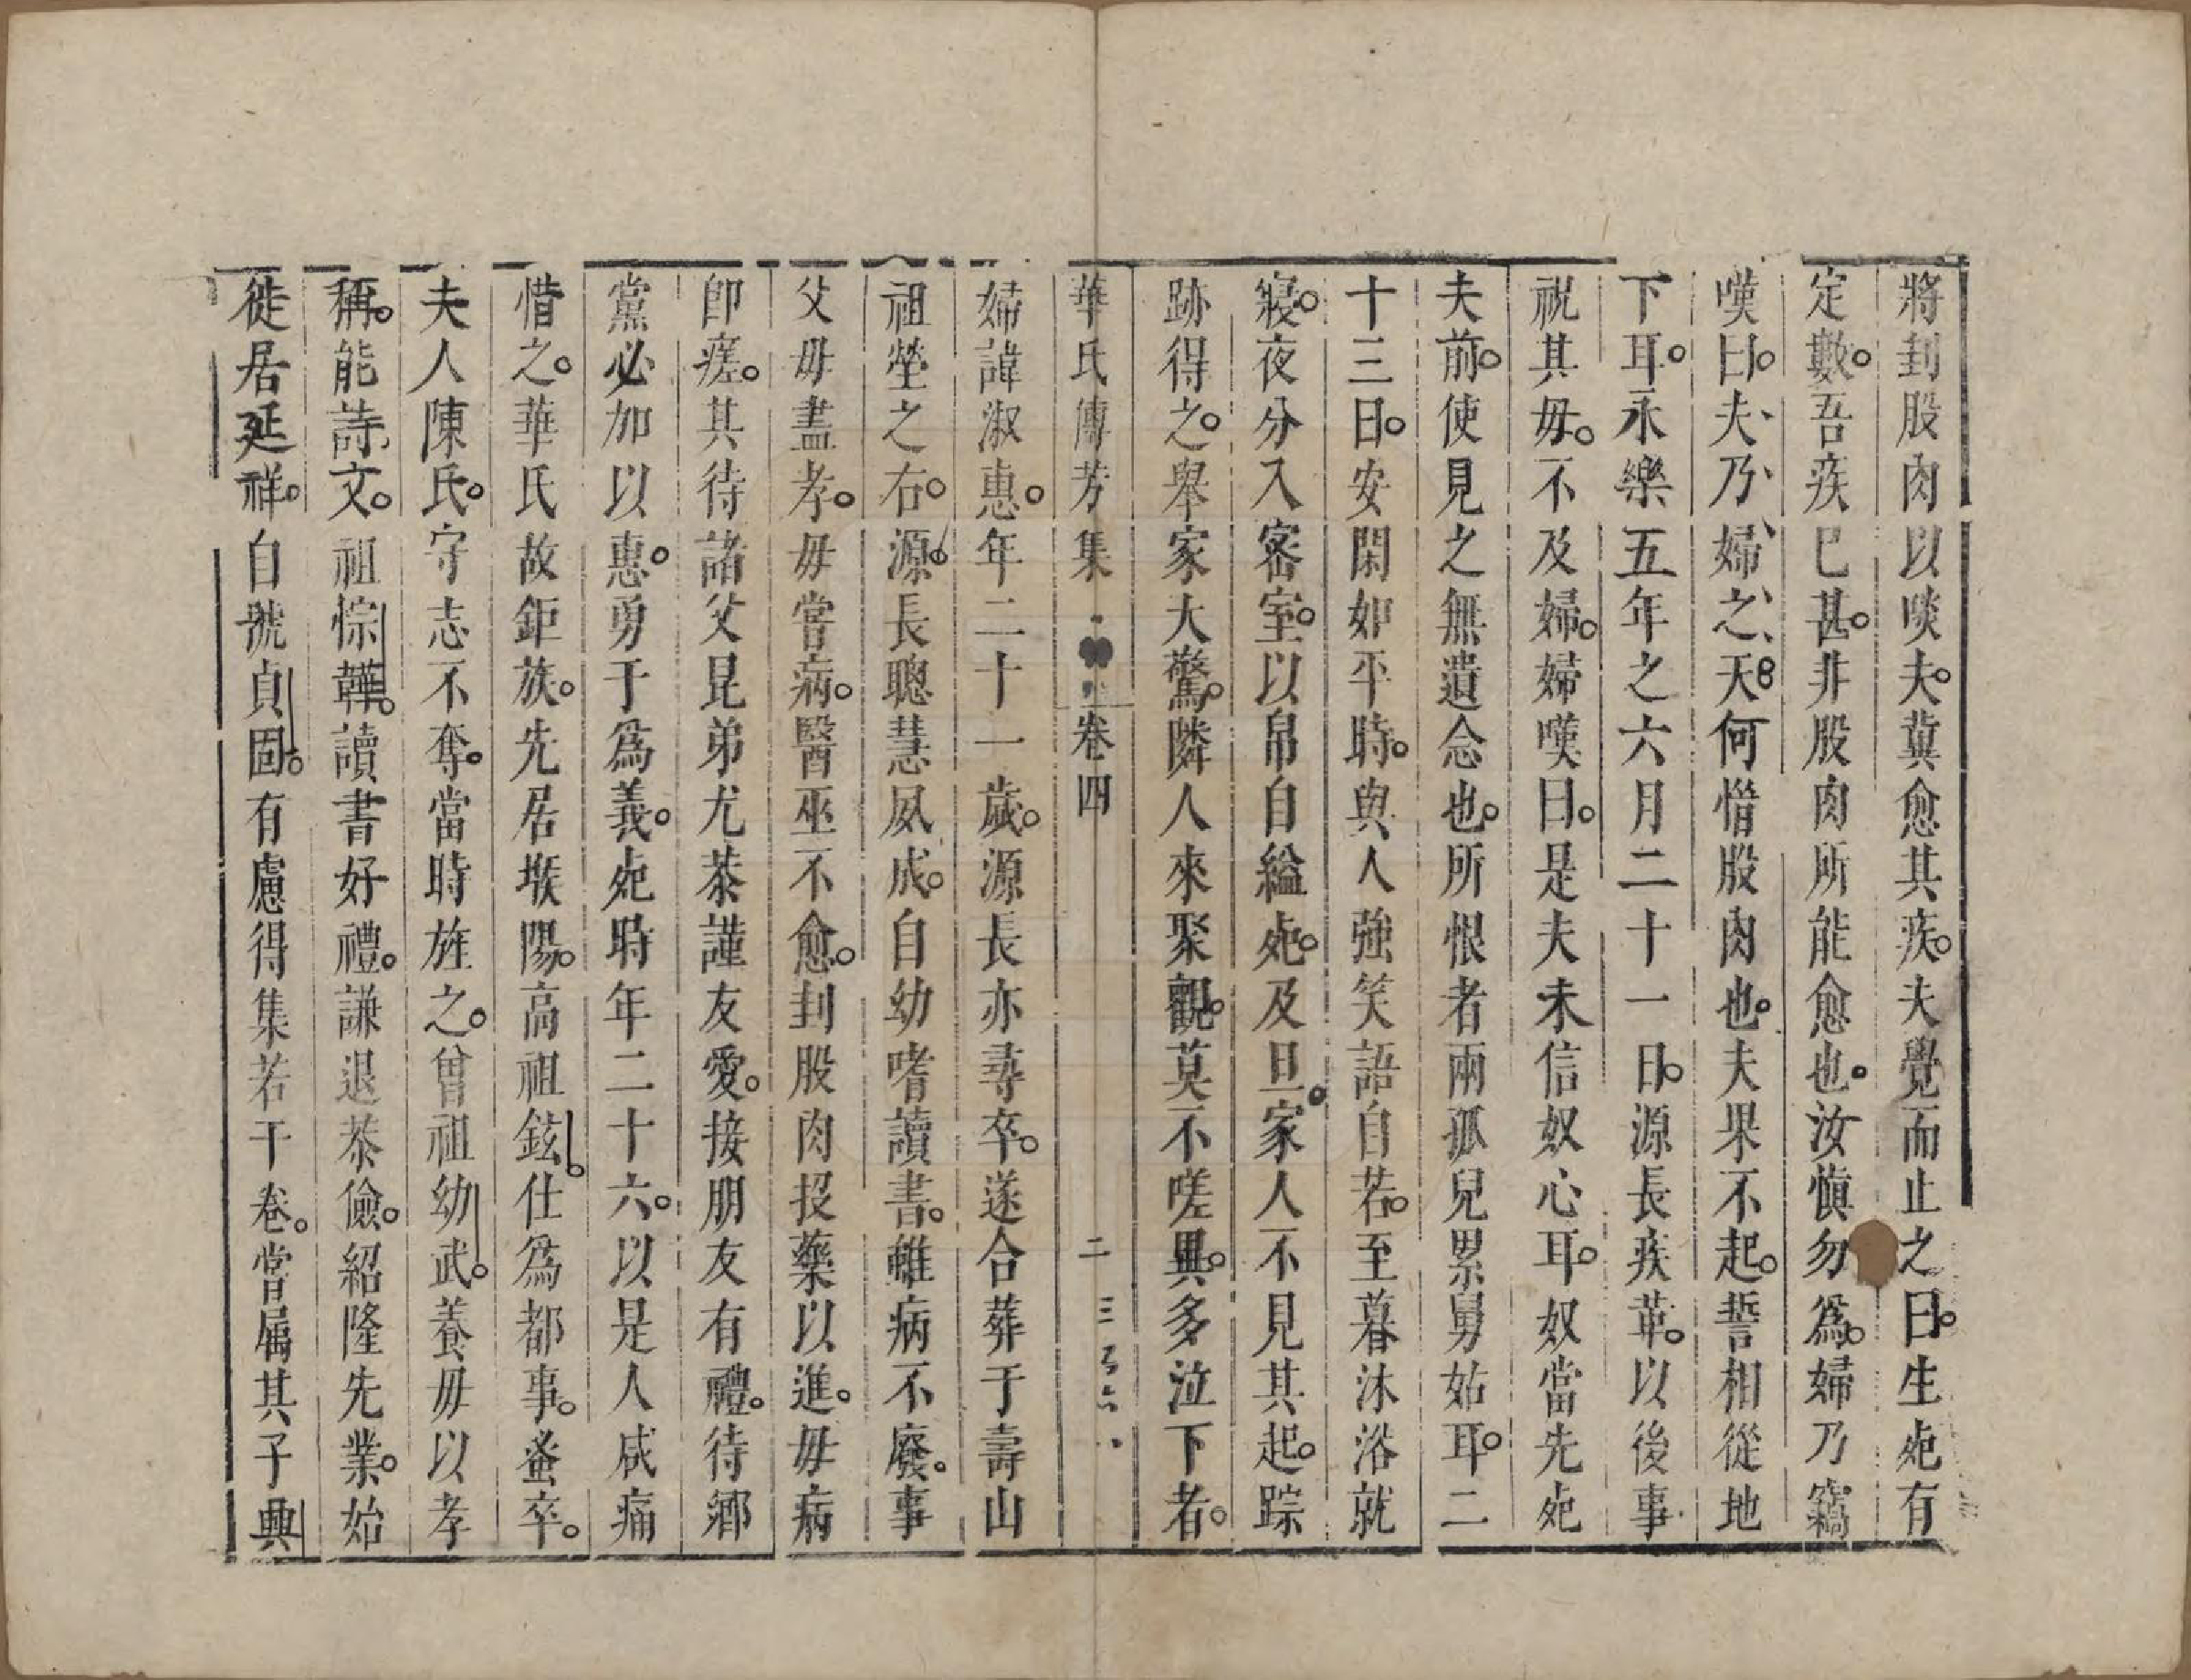 將刲股肉以啖夫。冀愈其疾。夫覺而止之曰。生死有
定數。吾疾已甚。非股肉所能愈也。汝愼勿爲。婦乃竊
嘆曰。夫、乃、婦、之、天。何惜股肉也。夫果不起。誓相從地
下耳。永樂五年之六月二十一日。源長疾革。以後事
祝其母。不及婦。婦嘆曰。是夫未信奴心耳。奴當先死
夫前。使見之無遺念也。所恨者兩孤兒累舅姑耳。二
十三日。安閑如平時。與人強笑語自若。至暮沐浴就
寢。夜分入密室。以帛自縊死。及旦。家人不見其起。踪
跡得之。舉家大驚。隣人來聚觀。莫不嗟異。多泣下者。
華氏傳芳集 卷四 二
婦諱淑惠。年二十一歲。源長亦尋卒。遂合葬于壽山
祖塋之右。源。長聰慧夙成。自幼嗜讀書。雖病不廢。事
父母盡孝。母嘗病。醫巫不愈。刲股肉投藥以進。母病
卽瘥。其待諸父昆弟尤恭謹友愛。接朋友有禮。待鄉
黨必加以惠。勇于爲義。死時年二十六。以是人咸痛
惜之。華氏故鉅族。先居堠陽。高祖鉉。仕爲都事。蚤卒。
夫人陳氏。守志不奪。當時旌之。曾祖幼武。養母以孝
稱。能詩文。祖悰韡。讀書好禮。謙退恭儉。紹隆先業。始
徙居延祥。自號貞固。有慮得集若干卷。嘗属其子興